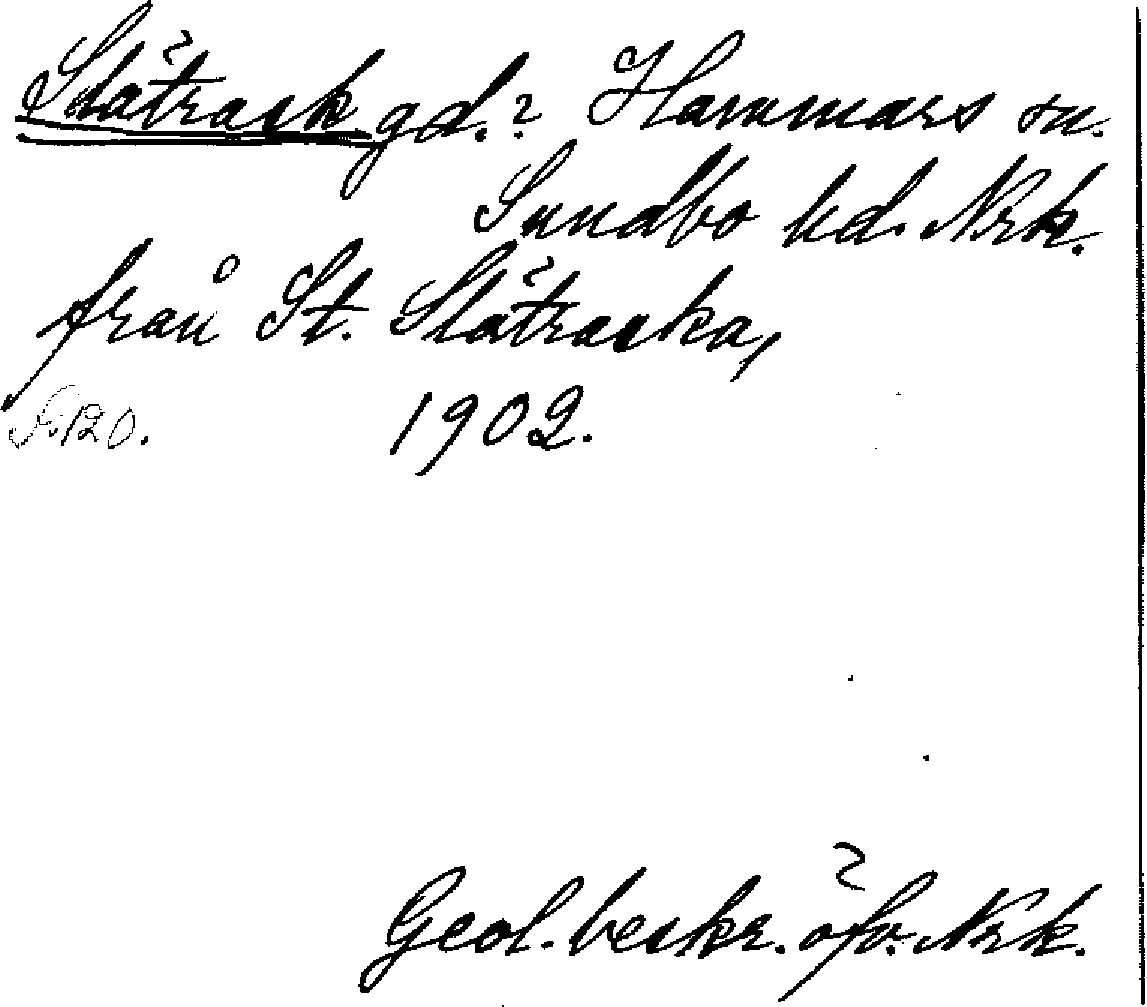 Slätrask gd.? Hammars sn.
Sundbo hd. Nrk.
från St. Slätraska,
120. 1902.
Geol. beskr. öfv. Nrk.